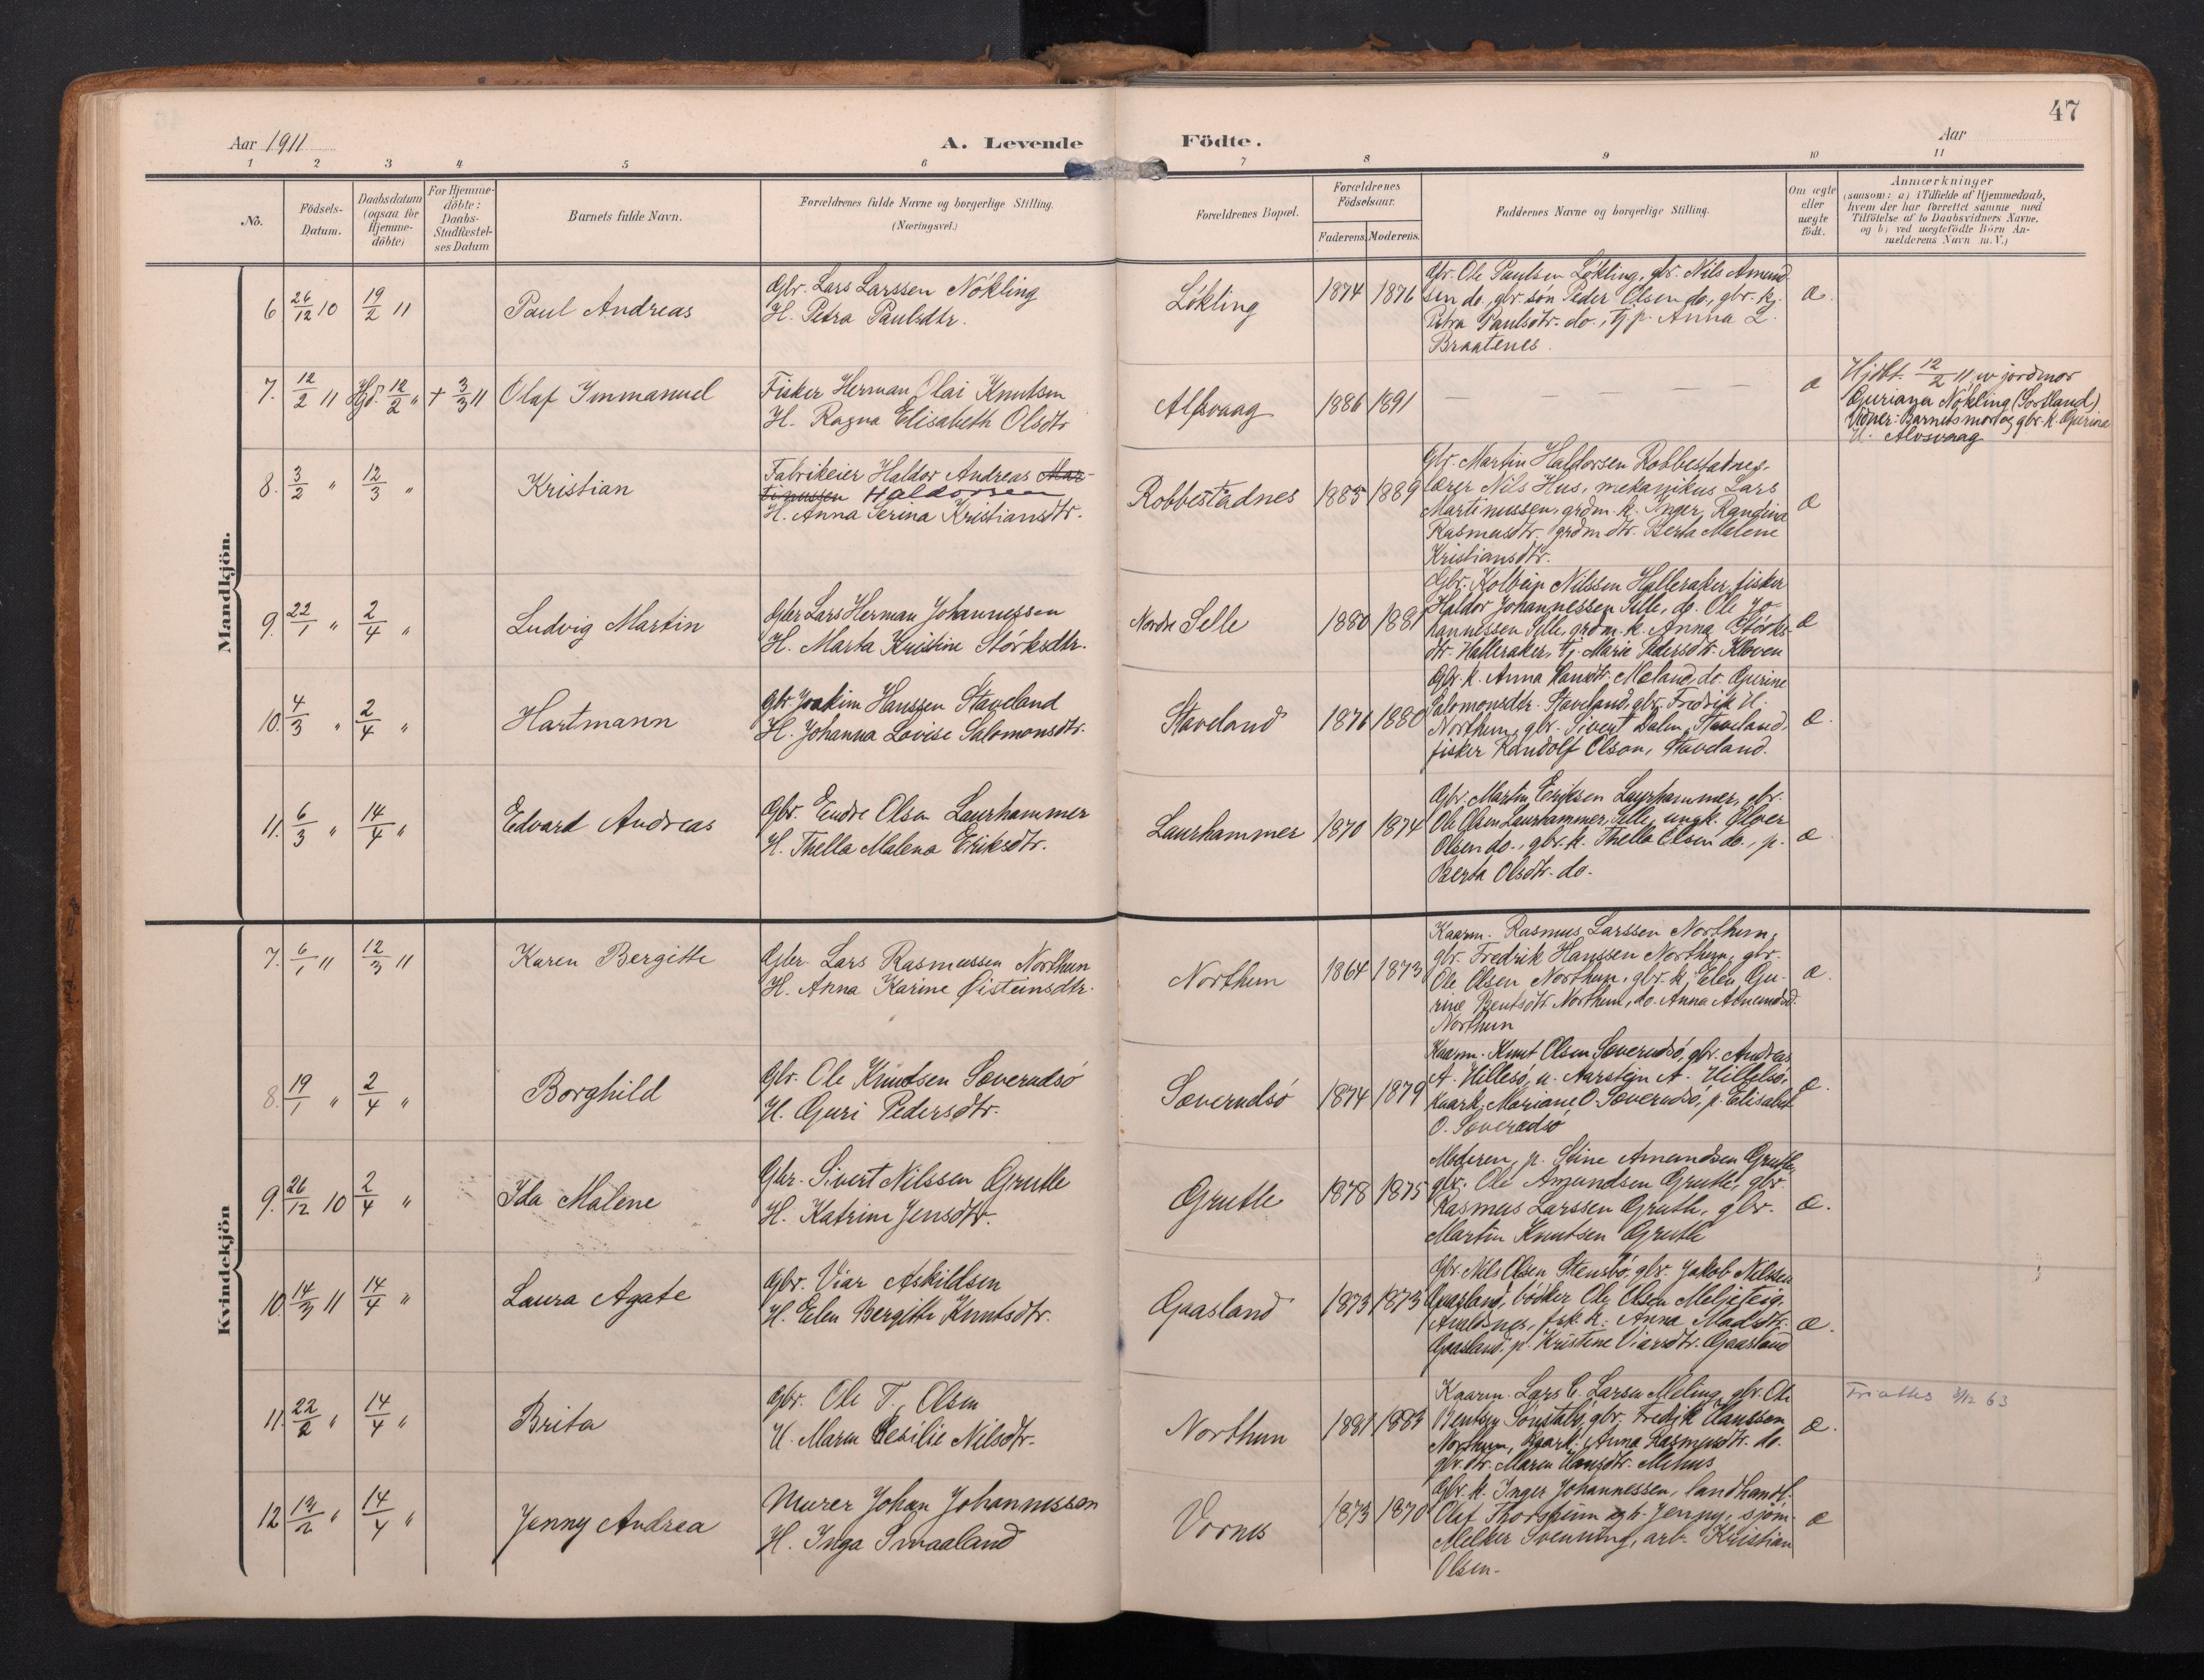 47
Aar 1911
A. Levende
Födte.
Aar
1 2 3 4 5 6 7 8 9 10 11
No.
Födsels-
Datum.
Daabsdatum
(ogsaa för
Hjemme-
döbte)
For Hjemme-
döbte:
Daabs-
Stadfæstel-
ses Datum
Barnets fulde Navn.
Forældrenes fulde Navne og borgerlige Stilling.
(Næringsvei.)
Forældrenes Bopæl.
Forældrenes
Födselsaar.
Faderens. Moderens.
Faddernes Navne og borgerlige Stilling.
Om ægte
eller
uægte
födt.
Anmærkninger
(saasom: a) i Tilfælde af Hjemmedaab,
hvem der har forrettet samme med
Tilföielse af to Daabsvidners Navne.
og b) ved uægtefödte Börn An-
melderens Navn m. V.)
Mandkjön.
6 26/12 10 19/2 11
Paul Andreas
Gbr. Lars Larssen Nökling
H. Petra Paulsdtr.
Lökling
1874 1876
Gbr. Ole Paulsen Lökling, gbr. Nils Amund
sen do., gbr. sön Peder Olsen do., gbr. k.
Petra Paulsdtr. do., tj. p. Anna L.
Braatenes.
æ.
7. 12/2 11 Hjd. 12/2 " + 3/3 11
Olaf Immanuel
Fisker Herman Olai Knutsen
H. Ragna Elisabeth Olsdtr
Alfsvaag
1886 1891
— — — —
æ
Hjdbt. 12/2 11 av jordmor
Guriana Nökling (Sortland)
Vidner: Barnets mor og gbr. k. Gurina
H. Alvsvaag
8. 3/2 " 12/3 "
Kristian
Fabrikeier Haldor Andreas Mar-
tinussen Haldorsen
H. Anna Serina Kristiansdtr.
Robbestadnes
1885 1889
Gbr. Martin Haldorsen Robbestadnes,
lærer Nils Hus, mekanikus Lars
Martinussen, grdm. k. Inger Randina
Rasmusdtr. grdm. dtr. Berta Malene
Kristiansdtr.
æ
9. 22/1 " 2/4 "
Ludvig Martin
Gbr Lars Herman Johannessen
H. Marta Kristine Störksdtr.
Nordre Selle
1880 1881
Gbr. Kolbein Nilssen Halleraker, fisker
Haldor Johannessen Selle, do. Ole Jo-
hannessen Selle, grdm. k. Anna Störks-
dtr. Halleraker, tj. Marie Pedersdtr. Kloven
æ
10. 4/3 " 2/4 "
Hartmann
Gbr. Joakim Hanssen Staveland
H. Johanna Lovise Salomonsdtr.
Staveland
1876 1880
Gbr. k. Anna Hansdtr. Meland, do. Gurine
Salomonsdtr. Staveland, gbr. Fredrik H.
Northun, gbr. Sivert Dalen Staveland,
fisker Randolf Olson, Staveland.
æ.
11. 6/3 " 14/4 "
Edvard Andreas
Gbr. Endre Olsen Laurhammer
H. Thella Malena Eriksdtr.
Laurhammer
1870 1874
Gbr. Martin Eriksen Laurhammer, gbr.
Ole Olsen Laurhammer, Selle, ungk. Oliver
Olsen do., gbr. k. Thella Olsen do., p.
Berta Olsdtr. do.
æ
Kvindekjön
7. 6/1 11 12/3 11
Karen Bergitte
Gbr. Lars Rasmussen Northun
H. Anna Karine Öisteinsdtr.
Northun
1864 1873
Kaarm. Rasmus Larssen Northun,
gbr. Fredrik Hanssen Northun, gbr.
Ole Olsen Northun, gbr. k. Elen Gu-
rine Bentsdtr Northun, do. Anna
Northun
æ.
8. 19/1 " 2/4 "
Borghild
Gbr. Ole Knudsen Sæverudsö
H. Guri Pedersdtr.
Sæverudsö
1874 1879
Kaarm. Knut Olsen Sæverudsö, gbr. Andreas
A. Hillesö, u. Aarstein A. Hillesö,
kaark. Mariane O. Sæverudsö, p. Elisabet
O. Sæverudsö
æ.
9. 26/12 10 2/4 "
Ida Malene
Gbr. Sivert Nilssen Grutle
H. Katrine Jensdtr.
Grutle
1878 1875
Moderen, p. Stine Amundsen Grutle,
gbr. Ole Amundsen Grutle, gbr.
Rasmus Larssen Grutle, gbr.
Martin Knutsen Grutle
æ.
10 14/3 11 14/4 "
Laura Agate
Gbr. Viar Askildsen
H. Elen Bergithe Knutsdtr.
Gaasland
1873 1873
Gbr. Nils Olsen Stensbö, gbr. Jakob Nilssen
Gaasland, bödker Ole Olsen Meljeteig,
k. Anna Madsdtr.
Gaasland, p. Kristene Viarsdtr. Gaasland
æ.
11. 22/2 " 14/4 "
Brita
Gbr. Ole T. Olsen
H. Maren Cesilie Nilsdtr.
Northun
1881 1883
Kaarm. Lars C. Larsen Meling, gbr. Ole
Bentsen Sönstabö, gbr. Fredrik Hanssen
Northun, kaark. Anna Rasmusdtr. do.
gbr. dtr. Maren Hansdtr. Mehus
æ.
63
12 13/2 " 14/4 "
Jenny Andrea
Murer Johan Johannessen
H. Inga Smaaland
Vornes
1873 1870
Gbr. k. Inger Johannessen, landhandl.
Olaf Thorsheim og h. Jenny, sjöm.
Melker Svenning, arb. Kristian
Olsen.
æ